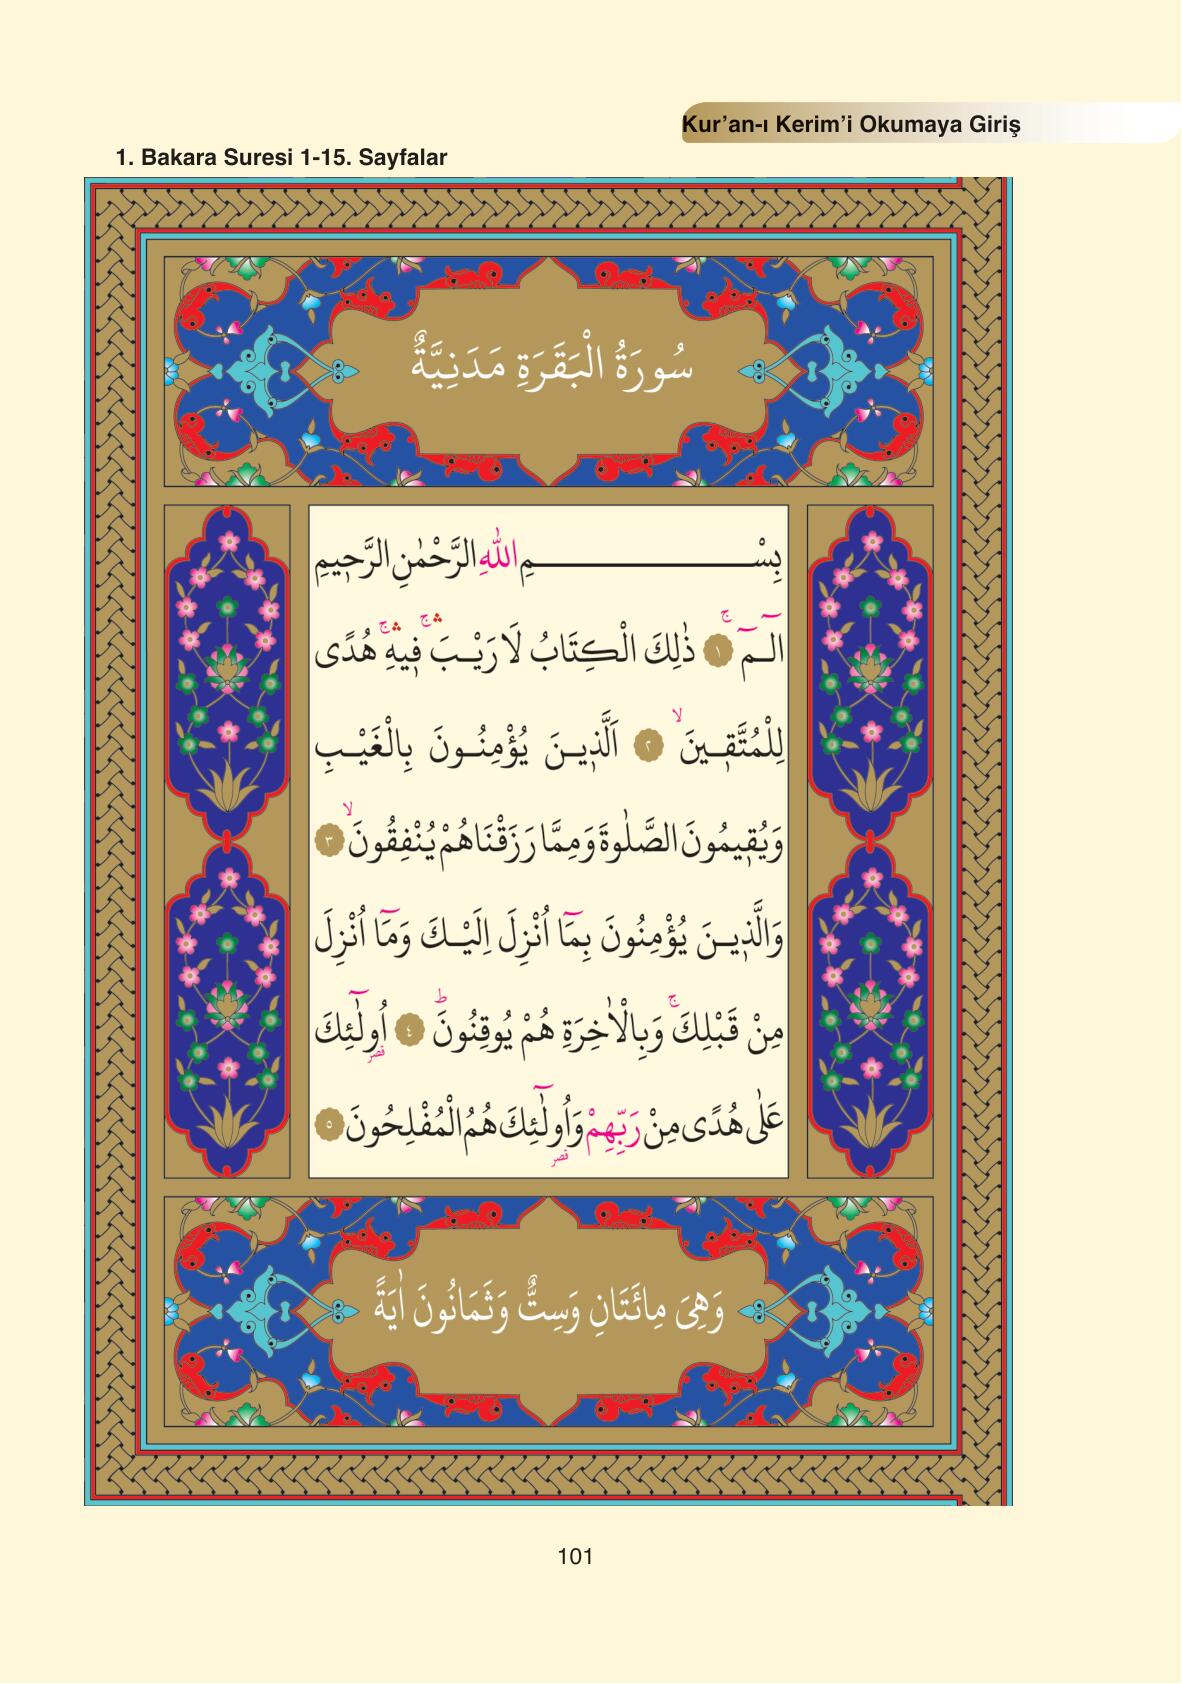 Kur’an-ı Kerim’i Okumaya Giriş
1. Bakara Suresi 1-15. Sayfalar
سُورَةُ الْبَقَرَةِ مَدَنِيَّةٌ
بِسْمِ اللّٰهِ الرَّحْمٰنِ الرَّحٖيمِ
الٓمٓ ۚ ١ ذٰلِكَ الْكِتَابُ لَا رَيْبَ ۛۚ فٖيهِ ۛۚ هُدًى
لِلْمُتَّقٖينَ ۙ ٢ اَلَّذٖينَ يُؤْمِنُونَ بِالْغَيْبِ
وَيُقٖيمُونَ الصَّلٰوةَ وَمِمَّا رَزَقْنَاهُمْ يُنْفِقُونَ ۙ ٣
وَالَّذٖينَ يُؤْمِنُونَ بِمَٓا اُنْزِلَ اِلَيْكَ وَمَٓا اُنْزِلَ
مِنْ قَبْلِكَ ۚ وَبِالْاٰخِرَةِ هُمْ يُوقِنُونَ ؕ ٤ اُولٰٓئِكَ
قصر
عَلٰى هُدًى مِنْ رَبِّهِمْ وَاُولٰٓئِكَ هُمُ الْمُفْلِحُونَ ٥
قصر
وَهِيَ مِائَتَانِ وَسِتٌّ وَثَمَانُونَ اٰيَةً
101